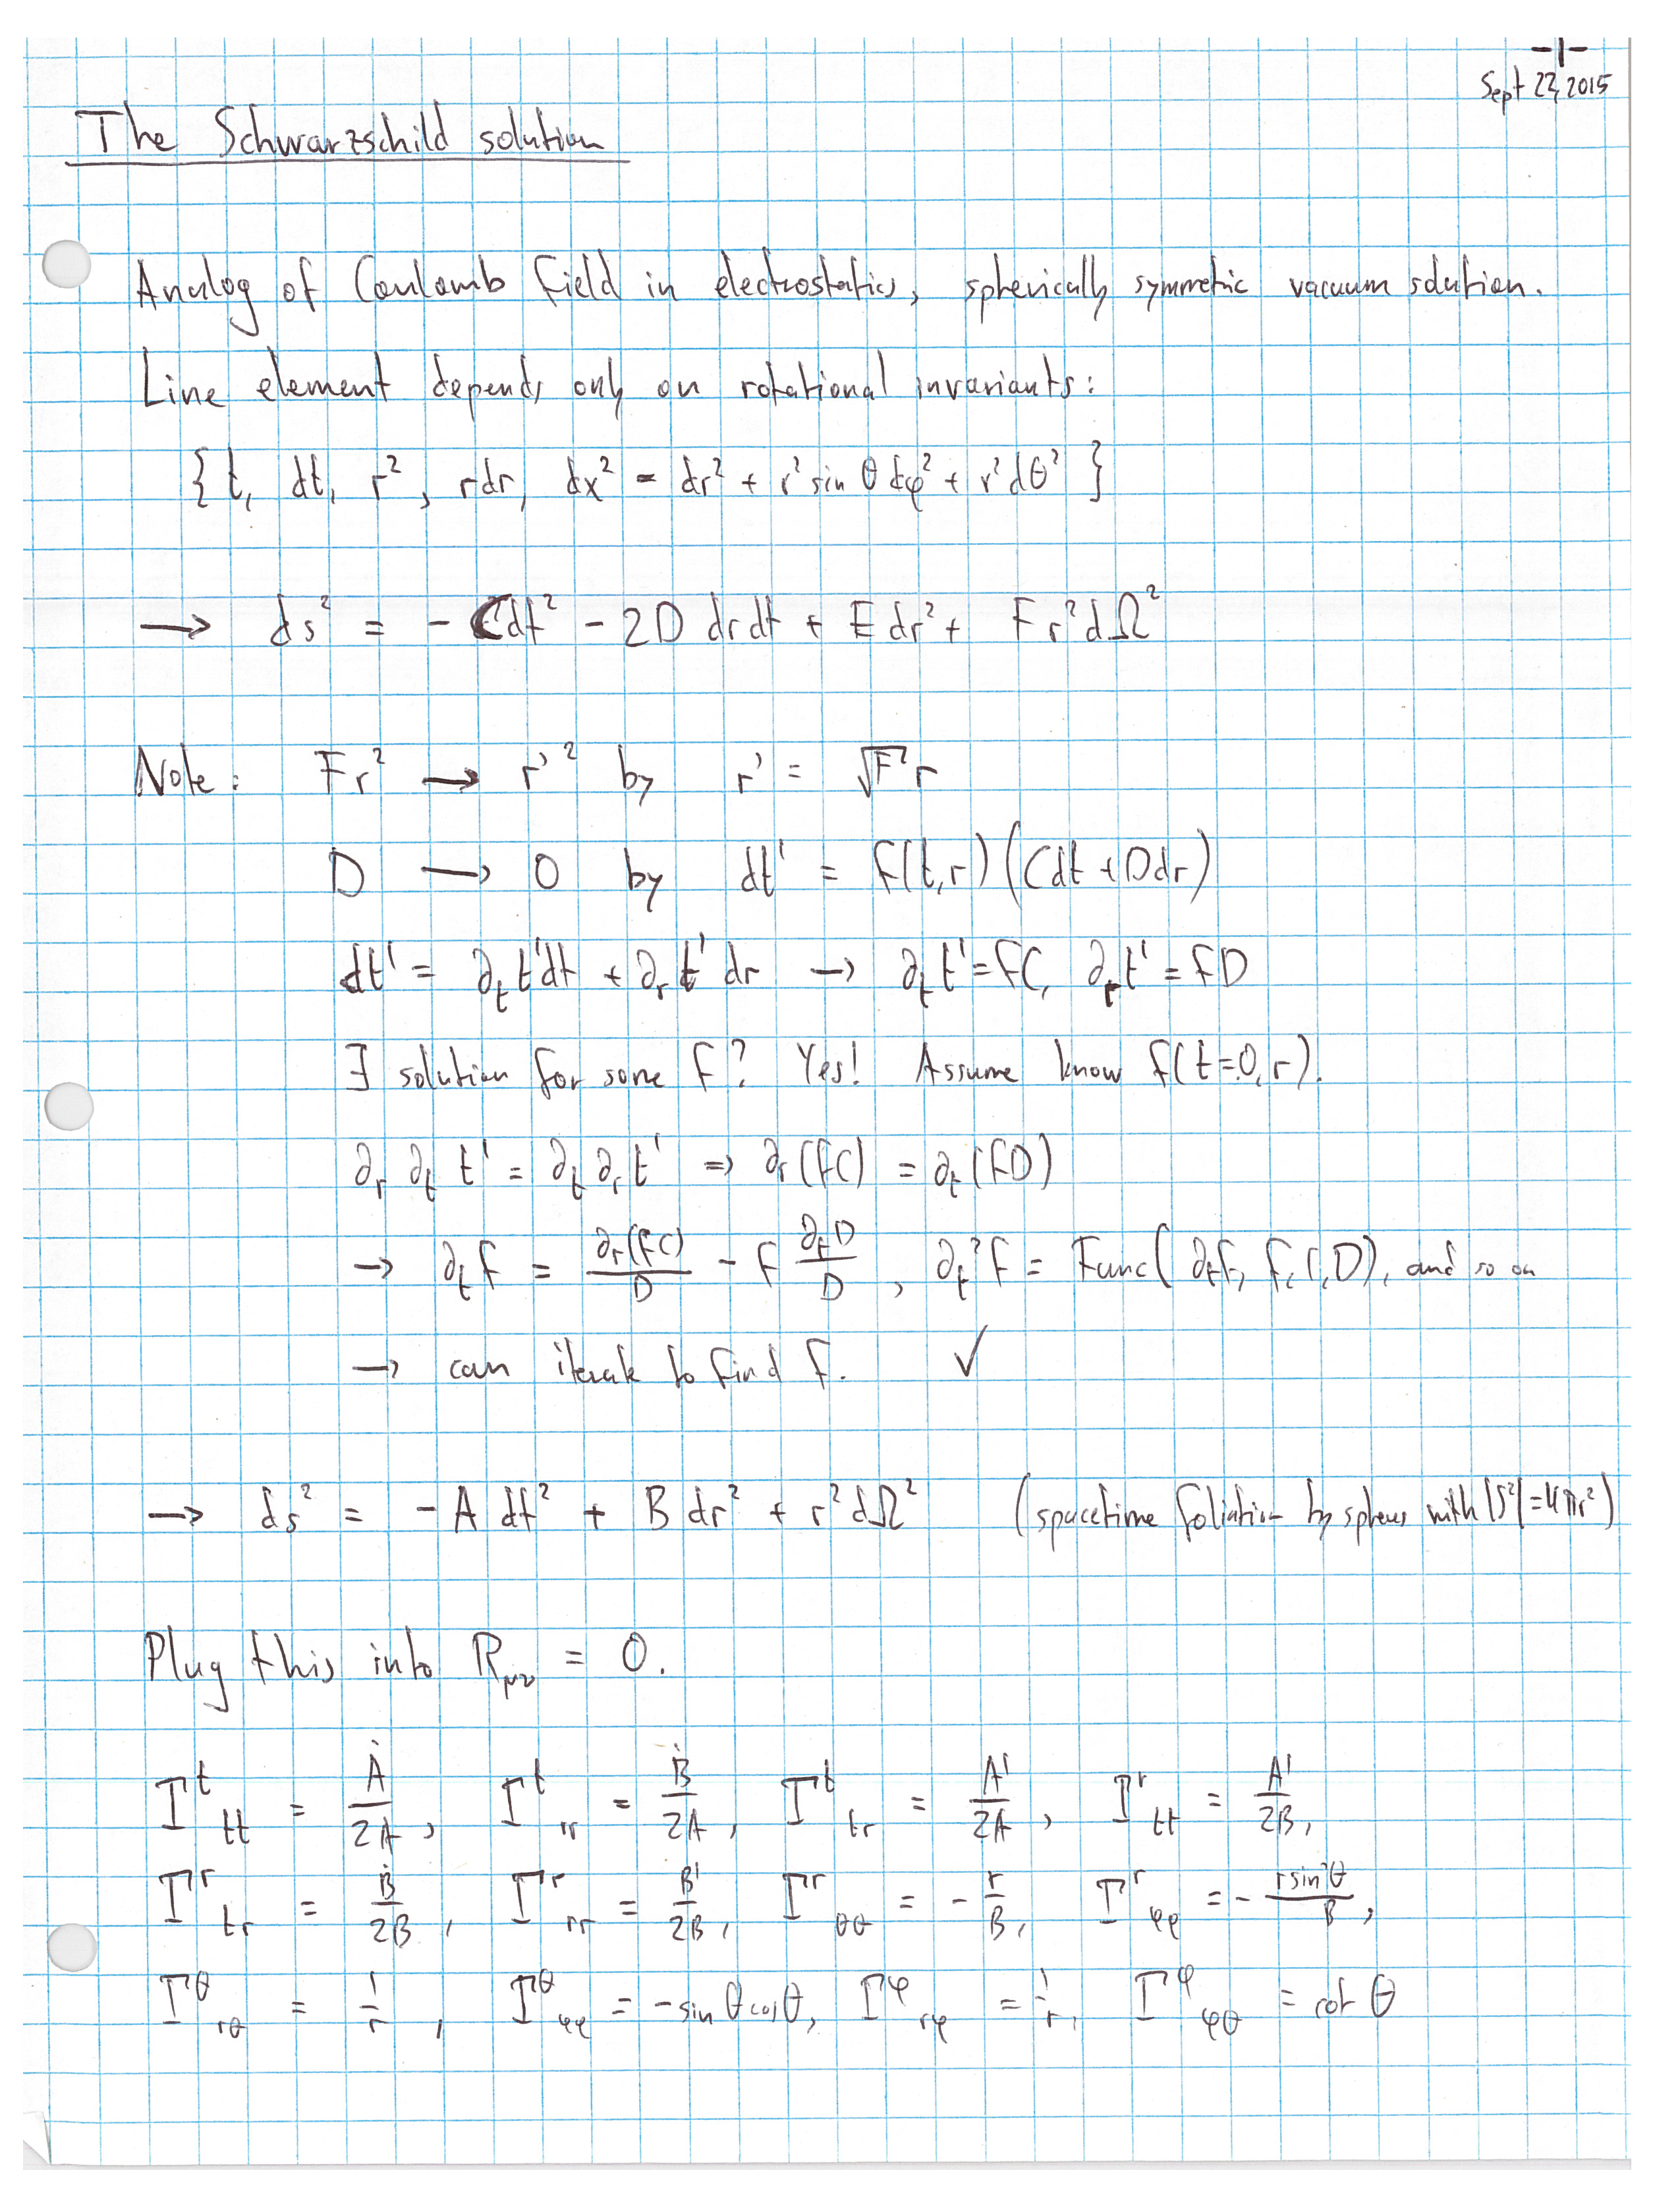 -1-
Sept 22, 2015
The Schwarzschild solution
Analog of Coulomb field in electrostatics, spherically symmetric vacuum solution.
Line element depends only on rotational invariants:
{t, dt, r², rdr, dx² = dr² + r² sin θ dφ² + r² dθ² }
→ ds² = - Cdt² - 2D drdt + E dr² + F r² dΩ²
Note: Fr² → r'² by r' = √F r
D → 0 by dt' = f(t,r) (Cdt + Ddr)
dt' = ∂ₜ t'dt + ∂ᵣ t' dr → ∂ₜ t' = fC, ∂ᵣ t' = fD
∃ solution for some f? Yes! Assume know f(t=0,r).
∂ᵣ ∂ₜ t' = ∂ₜ ∂ᵣ t' ⇒ ∂ᵣ (fC) = ∂ₜ (fD)
→ ∂ₜ f = ∂ᵣ(fC)/D - f ∂ₜD/D , ∂ₜ² f = Func( ∂ₜf, f, C, D), and so on
→ can iterate to find f. ✓
→ ds² = - A dt² + B dr² + r² dΩ² (spacetime foliation by spheres with |S²| = 4πr²)
Plug this into R_μν = 0.
Γ^t_tt = Ȧ/2A, Γ^t_rr = Ḃ/2A, Γ^t_tr = A'/2A, Γ^r_tt = A'/2B,
Γ^r_tr = Ḃ/2B, Γ^r_rr = B'/2B, Γ^r_θθ = - r/B, Γ^r_φφ = - r sin²θ/B,
Γ^θ_rθ = 1/r, Γ^θ_φφ = - sin θ cos θ, Γ^φ_rφ = 1/r, Γ^φ_φθ = cot θ